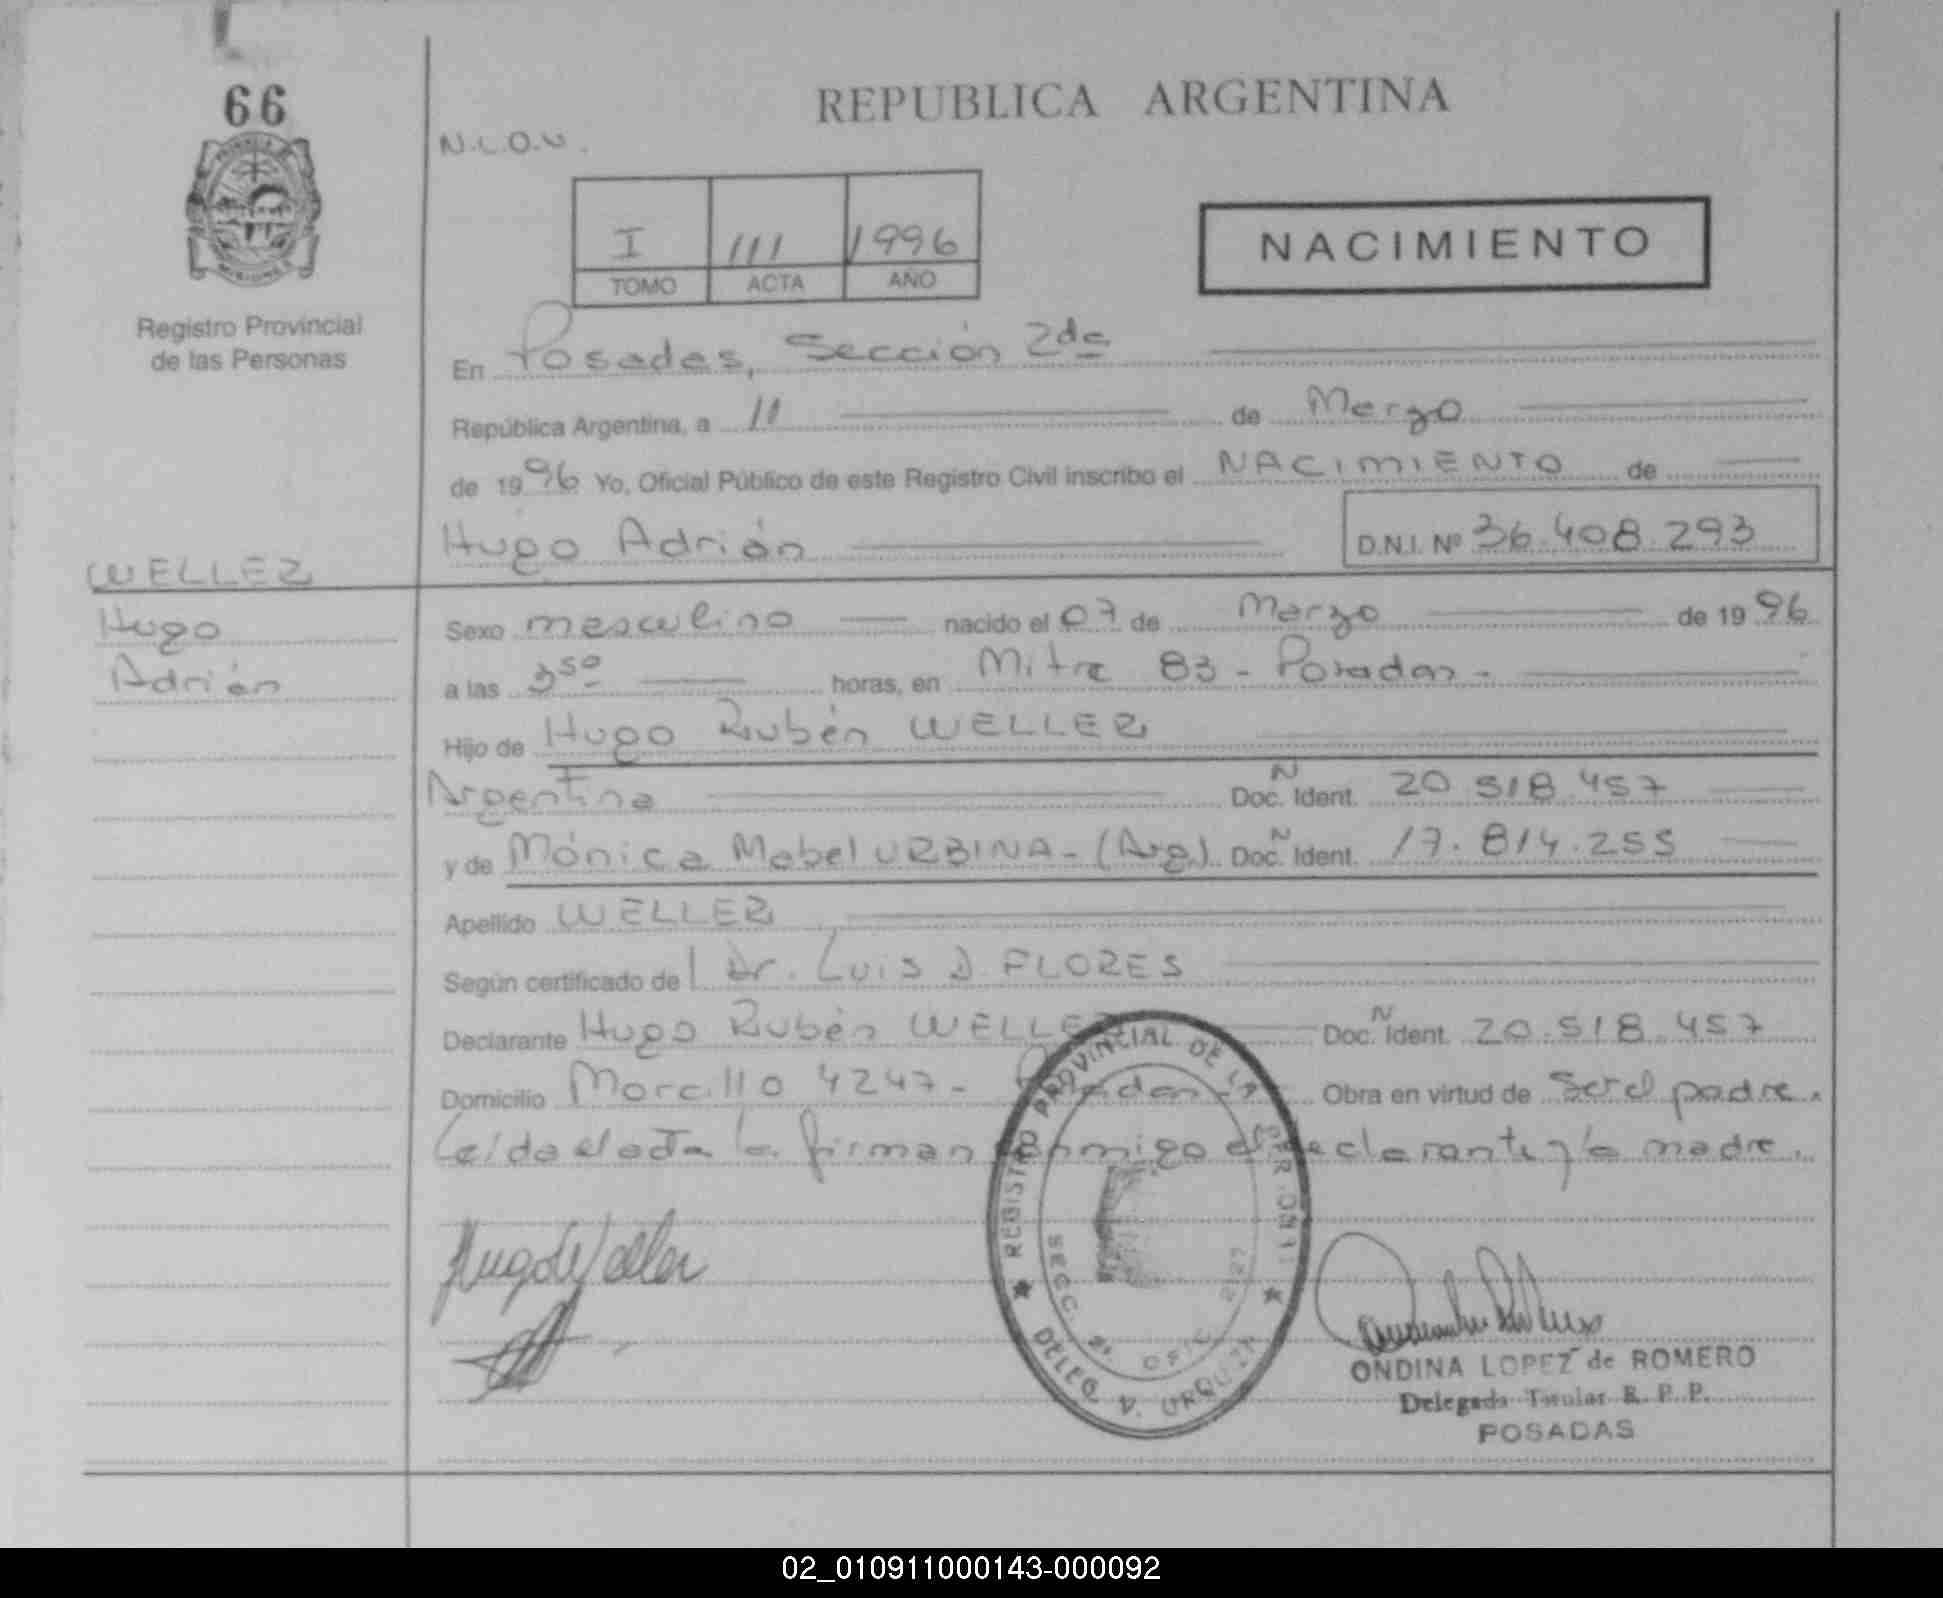 66
REPUBLICA ARGENTINA
N.L.O.N.
I 111 1996
TOMO ACTA AÑO
NACIMIENTO
Registro Provincial
de las Personas
En Posadas, Sección 2da
República Argentina, a 11 de Marzo
de 1996 Yo, Oficial Público de este Registro Civil inscribo el NACIMIENTO de
Hugo Adrián D.N.I. Nº 36.408.293
WELLER
Hugo
Adrián
Sexo masculino nacido el 07 de Marzo de 1996
a las 350 horas, en Mitre 83 - Posadas -
Hijo de Hugo Rubén WELLER
Argentina Doc. Ñ Ident. 20.518.457
y de Mónica Mabel URBINA - (Arg) Doc. Ñ Ident. 17.814.255
Apellido WELLER
Según certificado de Dr. Luis D. FLORES
Declarante Hugo Rubén WELLER Doc. Ñ Ident. 20.518.457
Domicilio Morcillo 4247 - Posadas - Obra en virtud de Ser el padre.
Leída el acta la firman conmigo el declarante y la madre.
Hugo Weller
REGISTRO PROVINCIAL DE LAS PERSONAS
SECC. 2ª OFIC. 2127
DELEG. V. URQUIZA
ONDINA LOPEZ de ROMERO
Delegada Titular R. P. P.
POSADAS
02_010911000143-000092